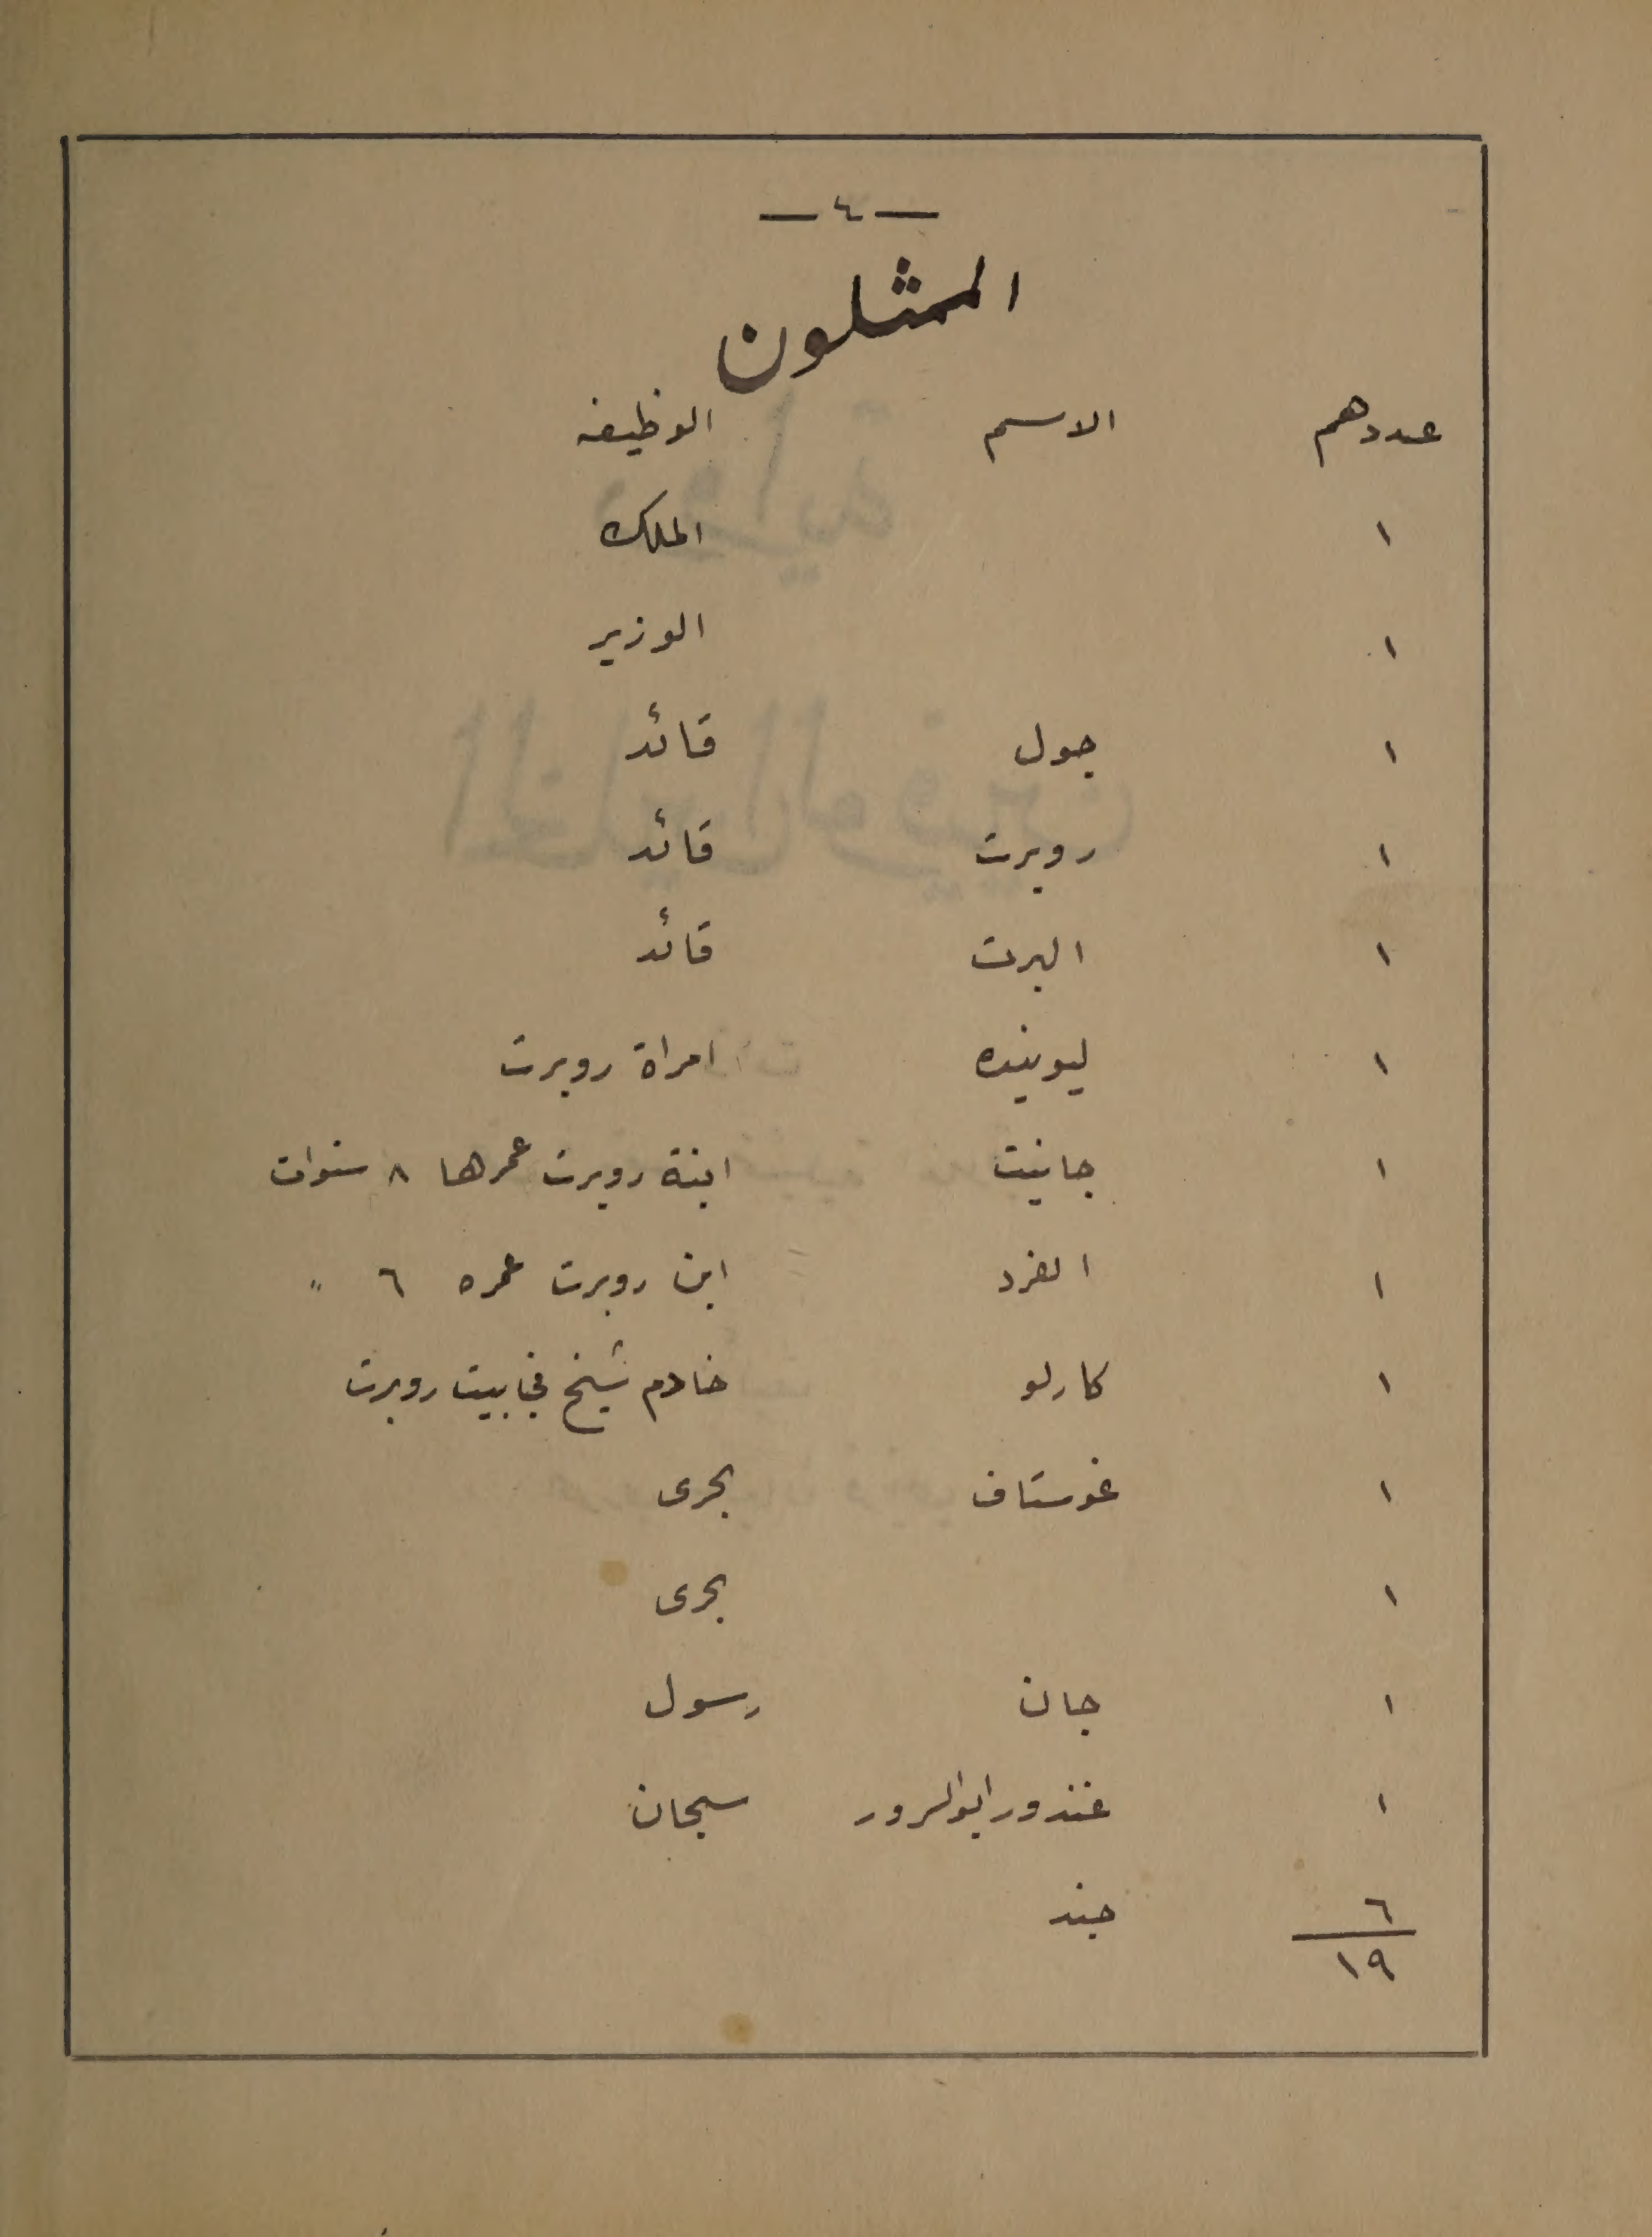 — ٤ —
الممثلون
عددهم الاسم الوظيفه
١ الملك
١ الوزير
١ جول قائد
١ روبرت قائد
١ البرت قائد
١ ليوينده امراة روبرت
١ جانيت ابنة روبرت عمرها ٨ سنوات
١ الفرد ابن روبرت عمره ٦ "
١ كارلو خادم شيخ في بيت روبرت
١ غوستاف بحرى
١ بحرى
١ جان رسول
١ غندور ابو السرور سجان
٦ جند
١٩